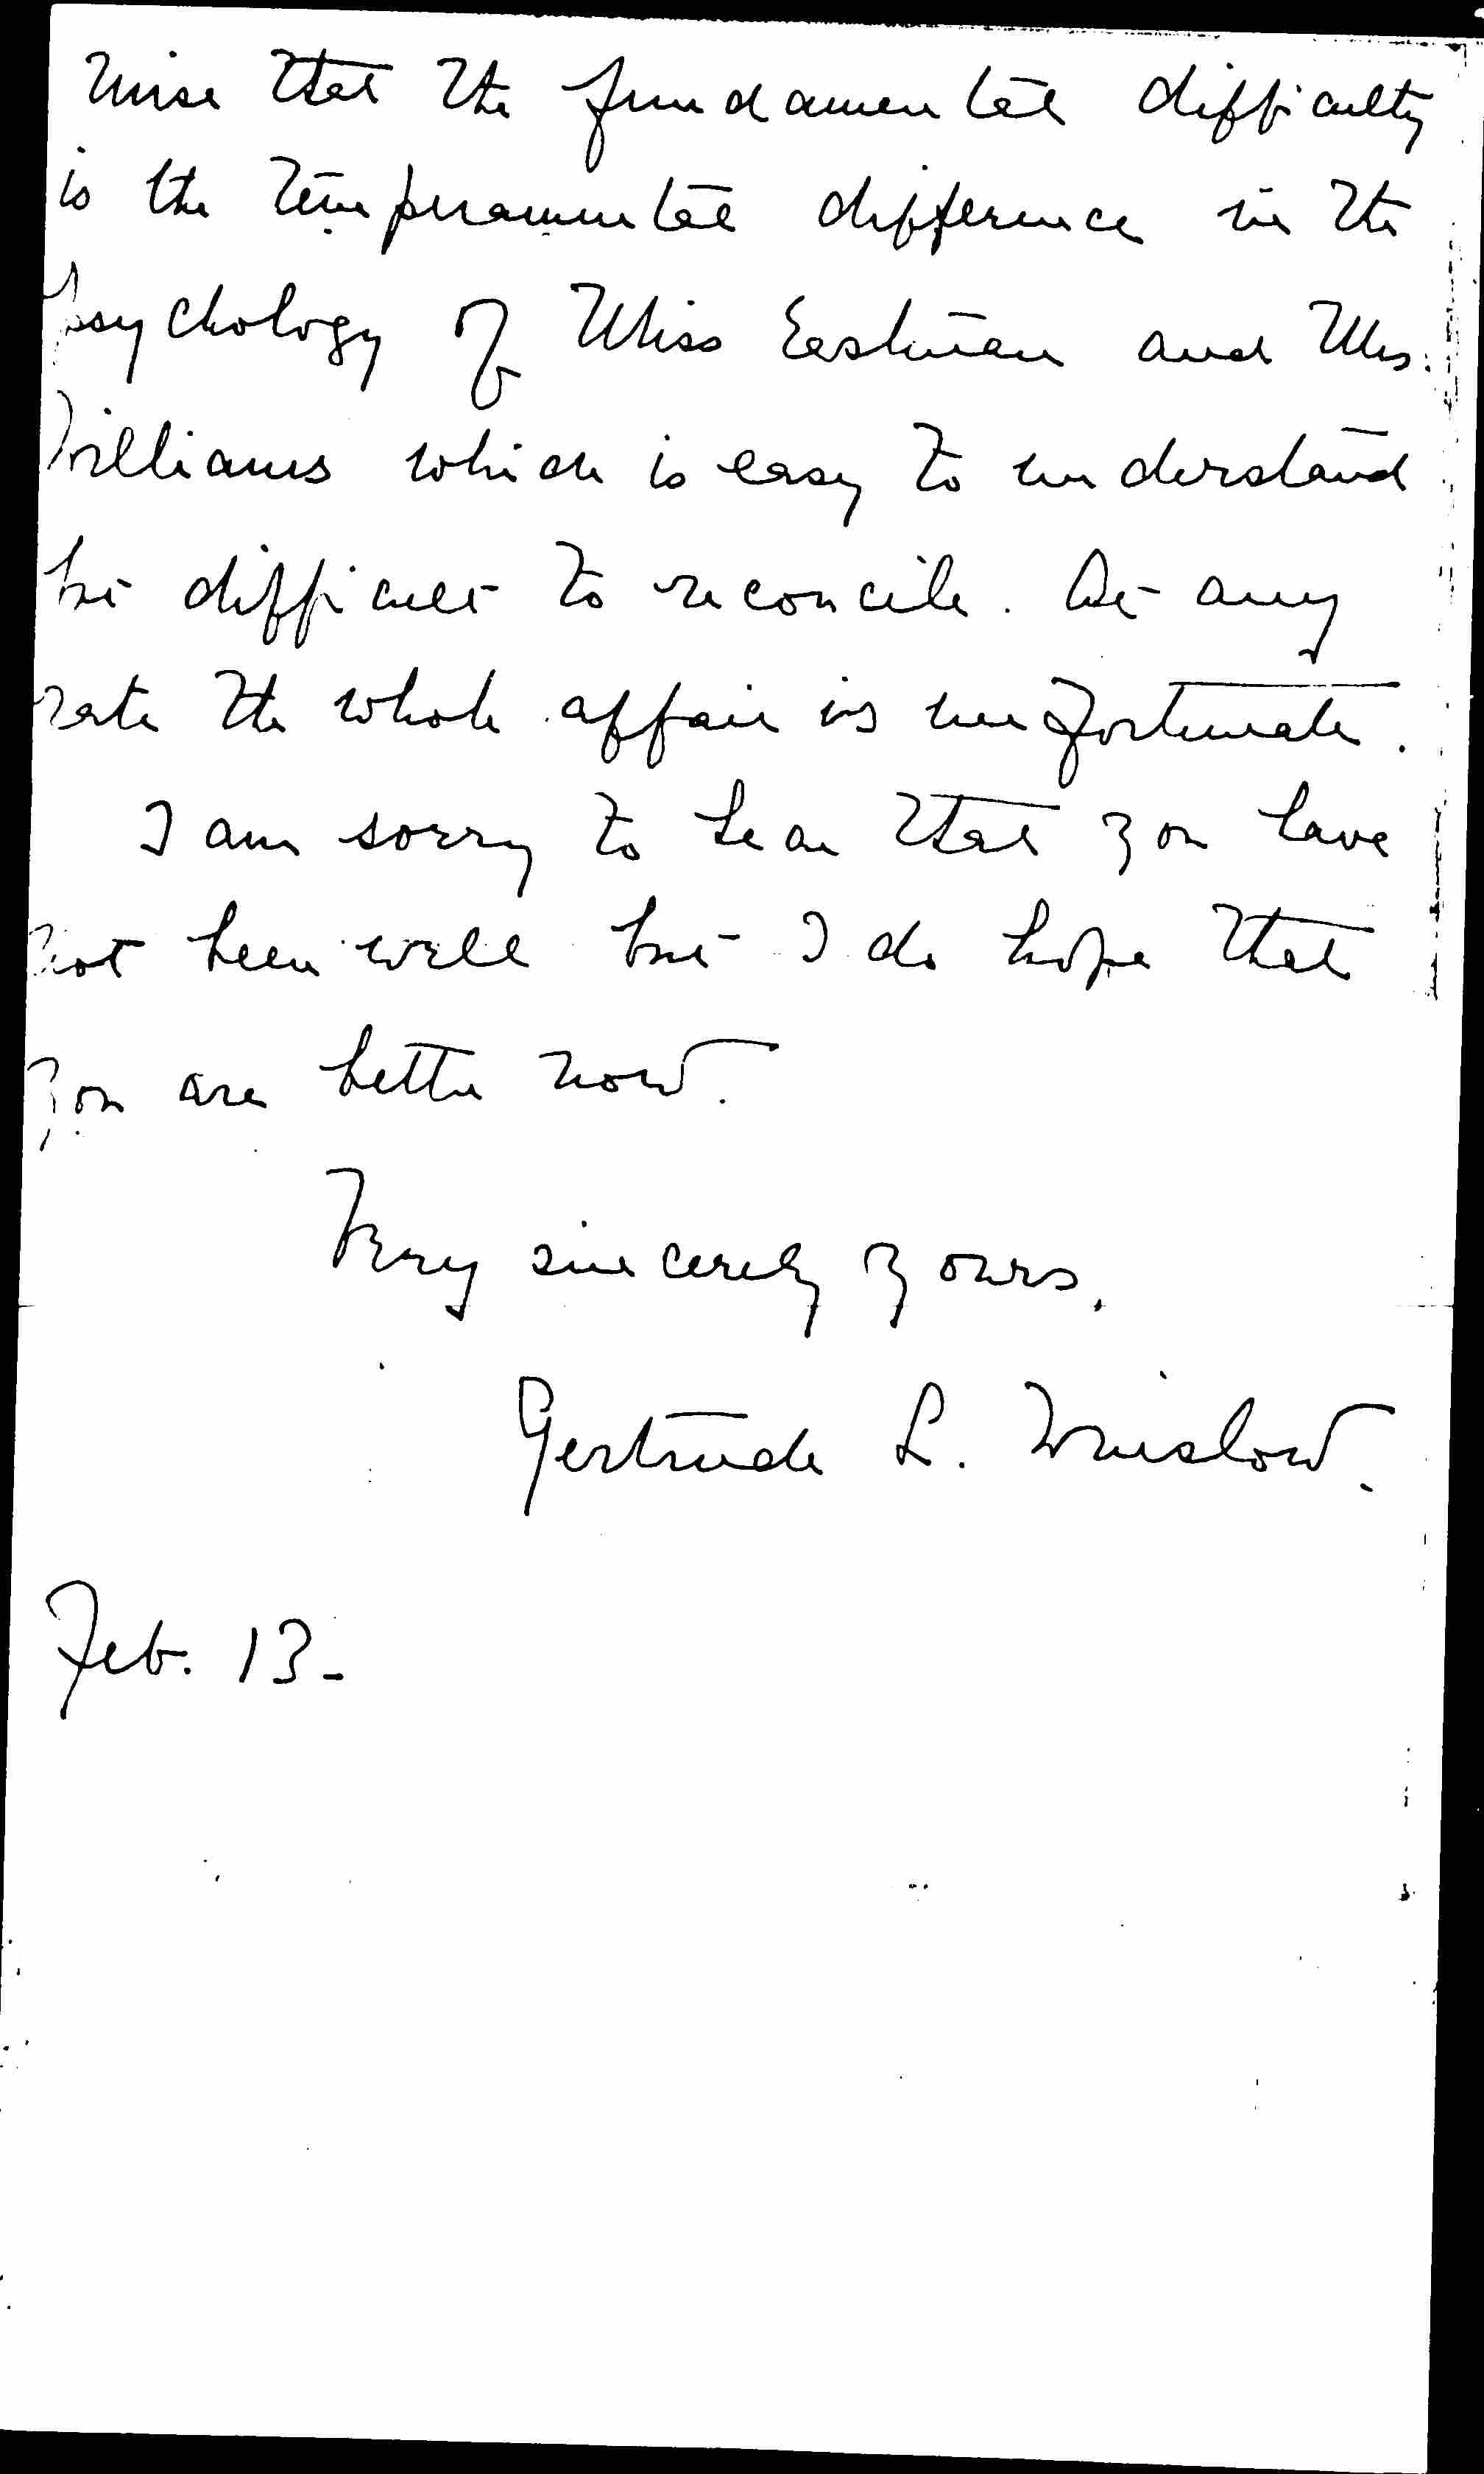 mise that the fundamental difficulty
is the temperamental difference in the
psychology of Miss Eastman and Mrs.
Williams which is easy to understand
but difficult to reconcile. At any
rate the whole affair is unfortunate.
I am sorry to hear that you have
not been well but I do hope that
you are better now.
Very sincerely yours,
Gertrude L. Winslow.
Feb. 13-